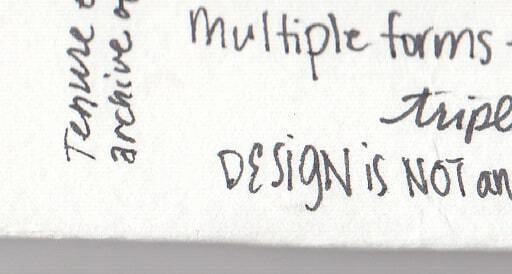 Tenure
archive
multiple forms -
triple
DESIGN is NOT an